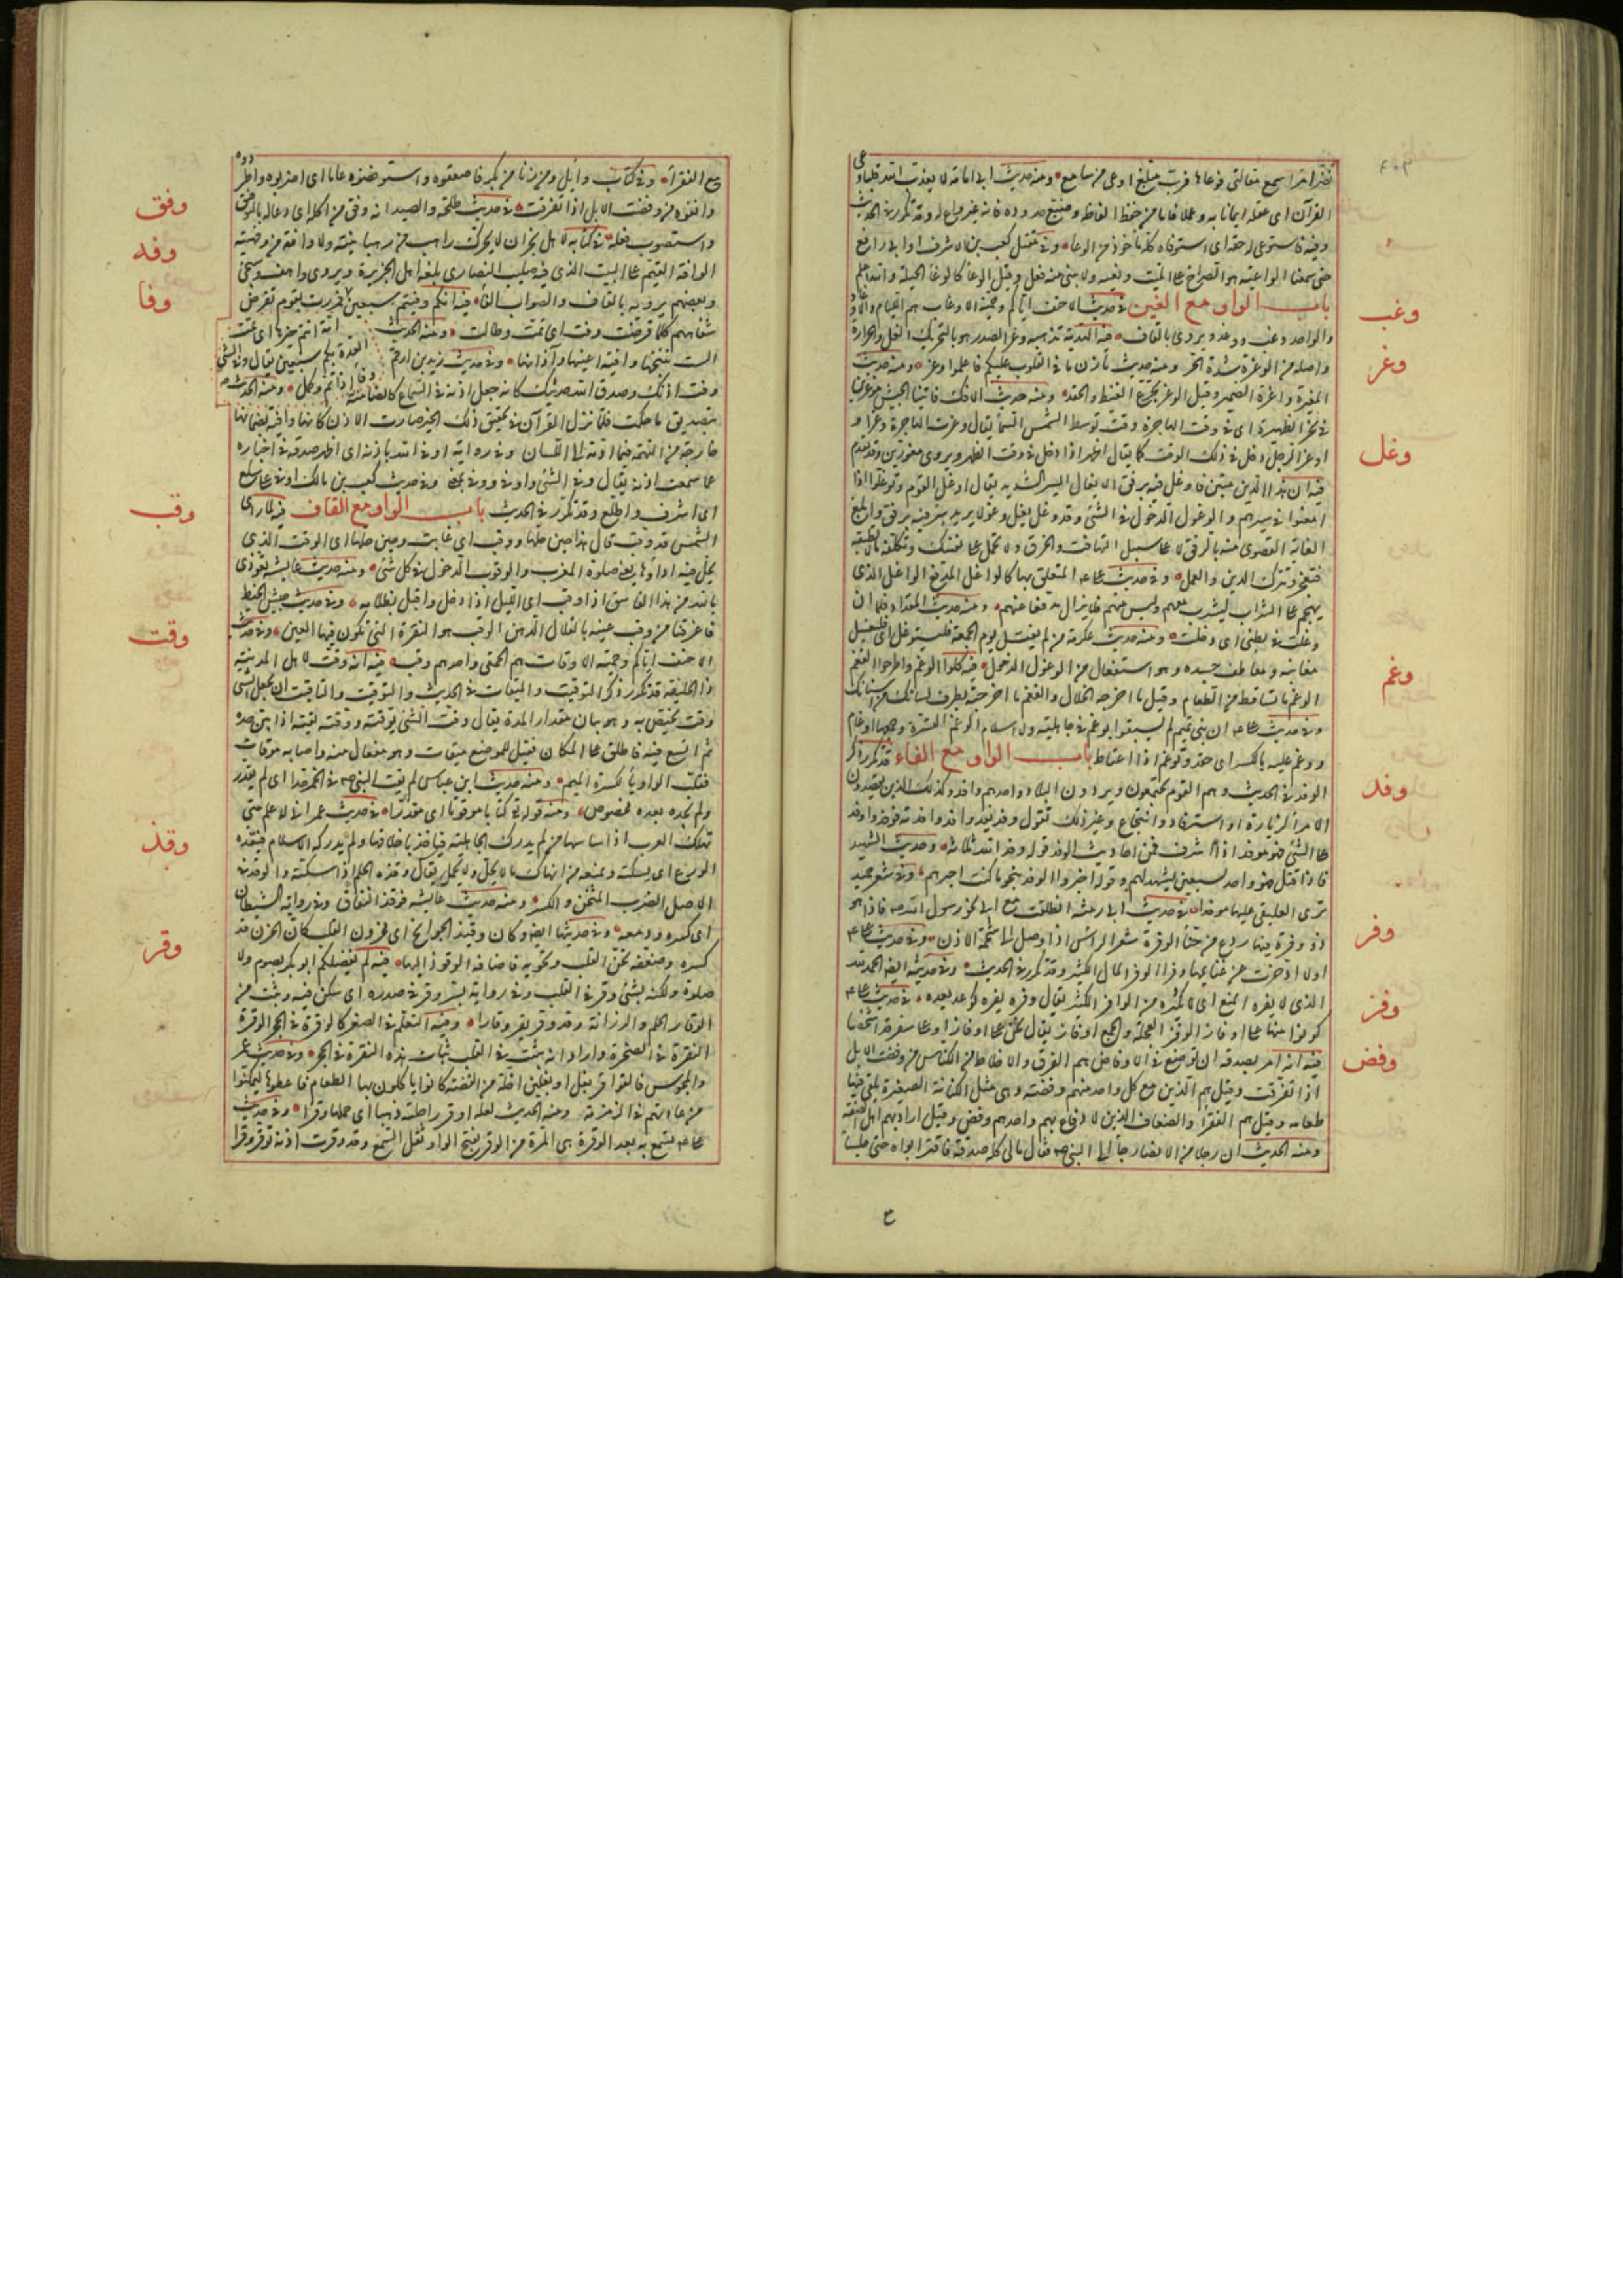 نضر الله امرا سمع مقالتى فوعاها فرب مبلغ اوعى من سامع ومنه حديث ابى امامة لا يعذب الله قلبا وعى
القرآن اى عقله ايمانا به وعملا فاما من حفظ الفاظه وضيع حدوده فانه غير واع له وقد تكرر فى الحديث
وفيه فاستوعى له حقه اى استوفاه كله مأخوذ من الوعاء وفى مقتل كعب بن الاشرف او ابى رافع
حتى سمعنا الواعية هو الصراخ على الميت ونعيه ولا يبنى منه فعل وقيل الوعا كالوغا الجلبة والله اعلم
باب الواو مع الغين فى حديث الاحنف اياكم وحمية الاوغاب هم اللئام والاوغاد
وغب
والواحد وغب ووغد ويروى بالقاف فيه الهدية تذهب وغر الصدر هو بالتحريك الغل والحرارة
وغر
واصله من الوغرة شدة الحر ومنه حديث مازن ما فى القلوب عليكم فاعلموا وغر ومنه حديث
المغيرة واغرة الضمير وقيل الوغر تجرع الغيظ والحقد ومنه حديث الافك فاتينا الجيش موغرين
فى نحر الظهيرة اى فى وقت الهاجرة وقت توسط الشمس السماء يقال وغرت الهاجرة وغرا و
اوغر الرجل دخل فى ذلك الوقت كما يقال اظهر اذا دخل فى وقت الظهر ويروى مغورين وقد تقدم
فيه ان هذا الدين متين فاوغل فيه برفق الايغال السير الشديد يقال اوغل القوم وتوغلوا اذا
وغل
امعنوا فى سيرهم والوغول الدخول فى الشئ وقد وغل يغل وغولا يريد سر فيه برفق وابلغ
الغاية القصوى منه بالرفق لا على سبيل التهافت والخرق ولا تحمل على نفسك وتكلفها ما لا تطيقه
فتعجز وتترك الدين والعمل وفى حديث على المتعلق بها كالواغل المدفع الواغل الذى
يهجم على الشراب ليشرب معهم وليس منهم فلا يزال مدفعا عنهم ومنه حديث المقداد فلما ان
وغلت فى بطنى اى دخلت ومنه حديث عكرمة من لم يغتسل يوم الجمعة فليستوغل اى فليغسل
مغابنه ومعاطف جسده وهو استفعال من الوغول الدخول فيه كلوا الوغم واطرحوا الفغم
وغم
الوغم ما تساقط من الطعام وقيل ما اخرجه الخلال والفغم ما اخرجته بطرف لسانك من اسنانك
وفى حديث على ان بنى تميم لم يسبقوا بوغم فى جاهلية ولا اسلام الوغم الترة وجمعها اوغام
ووغم عليه بالكسر اى حقد وتوغم اذا اغتاظ باب الواو مع الفاء قد تكرر ذكر
الوفد فى الحديث وهم القوم يجتمعون ويردون البلاد واحدهم وافد وكذلك الذين يقصدون
وفد
الامراء لزيارة او استرفاد وانتجاع وغير ذلك تقول وفد يفد وافد واوفدته فوفد واوفد
على الشئ فهو موفد اذا اشرف فمن احاديث الوفد قوله وفد الله ثلاثة وحديث الشهيد
فاذا قتل فهو وافد لسبعين يشهد لهم وقوله اجيزوا الوفد بنحو ما كنت اجيزهم وفى شعر حميد
ترى العليفى عليها موفدا فى حديث ابى رمثة انطلقت مع ابى نحو رسول الله فاذا هو
ذو وفرة فيها ردع من حنا الوفرة شعر الراس اذا وصل الى شحمة الاذن وفى حديث على
وفر
ولا ادخرت من غنائمها وفرا الوفر المال الكثير وقد تكرر فى الحديث وفى حديثه ايضا الحمد لله
الذى لا يفره المنع اى لا يكثره من الوافر الكثير يقال وفره يفره كوعد يعده فى حديث على
كونوا منها على اوفاز الوفز العجلة والجمع اوفاز يقال نحن على اوفاز اى على سفر قد اشخصنا
وفز
فيه انه امر بصدقة ان توضع فى الاوفاض هم الفرق والاخلاط من الناس من وفضت الابل
وفض
اذا تفرقت وقيل هم الذين مع كل واحد منهم وفضة وهى مثل الكنانة الصغيرة يلقى فيها
طعامه وقيل هم الفقراء والضعاف الذين لا دفاع بهم واحدهم وفض وقيل اراد بهم اهل الصفة
ومنه الحديث ان رجلا من الانصار جاء الى النبى فقال مالى كله صدقة فاقتر ابواه حتى جلسا
مع الفقراء وفى كتاب وائل ومن زنا من بكر فاصقعوه واستوفضوه عاما اى اضربوه واطردوه
وانفوه من وفضت الابل اذا تفرقت فى حديث طلحة والصيد انه وفق من اكله اى دعا له بالتوفيق
وفق
واستصوب فعله فى كتابه لاهل نجران لا يحرك راهب من رهبانيته ولا وافه من وفهيته
وفه
الوافه القيم على البيت الذى فيه صليب النصارى بلغة اهل الجزيرة ويروى واهف وسيجئ
وبعضهم يرويه بالقاف والصواب الفاء فيه انكم وفيتم سبعين امة انتم خيرها اى تمت العدة بكم سبعين يقال وفى الشئ وفاء اذا تم وكمل ومنه الحديث
وفا
فمررت بقوم تقرض شفاههم كلما قرضت وفت اى تمت وطالت ومنه الحديث
الست تنتجها وافية اعينها وآذانها وفى حديث زيد بن ارقم
وفت اذنك وصدق الله حديثك كانه جعل اذنه فى السماع كالضامنة
بتصديق ما حكت فلما نزل القرآن فى تحقيق ذلك الخبر صارت الاذن كانها وافية بضمانها
خارجة من التهمة فيما ادته الى اللسان وفى رواية اوفى الله باذنه اى اظهر صدقه فى اخباره
عما سمعت اذنه يقال وفى الشئ واوفى ووفى بمعنى وفى حديث كعب بن مالك اوفى على سلع
اى اشرف واطلع وقد تكرر فى الحديث باب الواو مع القاف فيه لما راى
وقب
الشمس قد وقبت قال هذا حين حلها ووقبت اى غابت وحين حلها اى الوقت الذى
يحل فيه اداؤها يعنى صلوة المغرب والوقوب الدخول فى كل شئ ومنه حديث عايشة تعوذى
بالله من هذا الغاسق اذا وقب اى الليل اذا دخل واقبل بظلامه وفى حديث جيش الخبط
فاغترفنا من وقب عينه بالقلال الدهن الوقب هو النقرة التى تكون فيها العين وفى حديث
الاحنف اياكم وحمية الاوقاب هم الحمقى واحدهم وقب فيه انه وقت لاهل المدينة
وقت
ذا الحليفة قد تكرر ذكر التوقيت والميقات فى الحديث والتوقيت والتاقيت ان يجعل للشئ
وقت يختص به وهو بيان مقدار المدة يقال وقت الشئ يوقته ووقته يقته اذا بين حده
ثم اتسع فيه فاطلق على المكان فقيل للموضع ميقات وهو مفعال منه واصله موقات
فقلبت الواو ياء لكسرة الميم ومنه حديث ابن عباس لم يقت النبى فى الخمر حدا اى لم يقدر
ولم يحده بعدد مخصوص ومنه قوله تع كتابا موقوتا اى مقدرا فى حديث عمر انى لاعلم متى
تهلك العرب اذا ساسها من لم يدرك الجاهلية فياخذ باخلاقها ولم يدركه الاسلام فيقذه
وقذ
الورع اى يسكته ويمنعه من انتهاك ما لا يحل ولا يجمل يقال وقذه الحلم اذا سكنه والوقذ فى
الاصل الضرب المثخن والكسر ومنه حديث عايشة فوقذ النفاق وفى رواية الشيطان
اى كسره ودمغه وفى حديثها ايضا وكان وقيذ الجوانح اى محزون القلب كان الحزن قد
كسره وضعفه والجوانح تجن القلب وتحويه فاضافه الوقوذ اليها فيه لم يفضلكم ابو بكر بصوم ولا
وقر
صلوة ولكنه بشئ وقر فى القلب وفى رواية لسر وقر فى صدره اى سكن فيه وثبت من
الوقار الحلم والرزانة وقد وقر يقر وقارا ومنه التعلم فى الصغر كالوقرة فى الحجر الوقرة
النقرة فى الصخرة واراد انه يثبت فى القلب ثبات هذه النقرة فى الحجر وفى حديث عمر
والمجوس فالقوا وقر بغل او بغلين اخلة من الفضة كانوا ياكلون بها الطعام فاعطوها ليمكنوا
من عادتهم فى الزمزمة ومنه الحديث لعله اوقر راحلته ذهبا اى حملها وقرا وفى حديث
على تسمع به بعد الوقرة هى المرة من الوقر بفتح الواو ثقل السمع وقد وقرت اذنه توقر وقرا